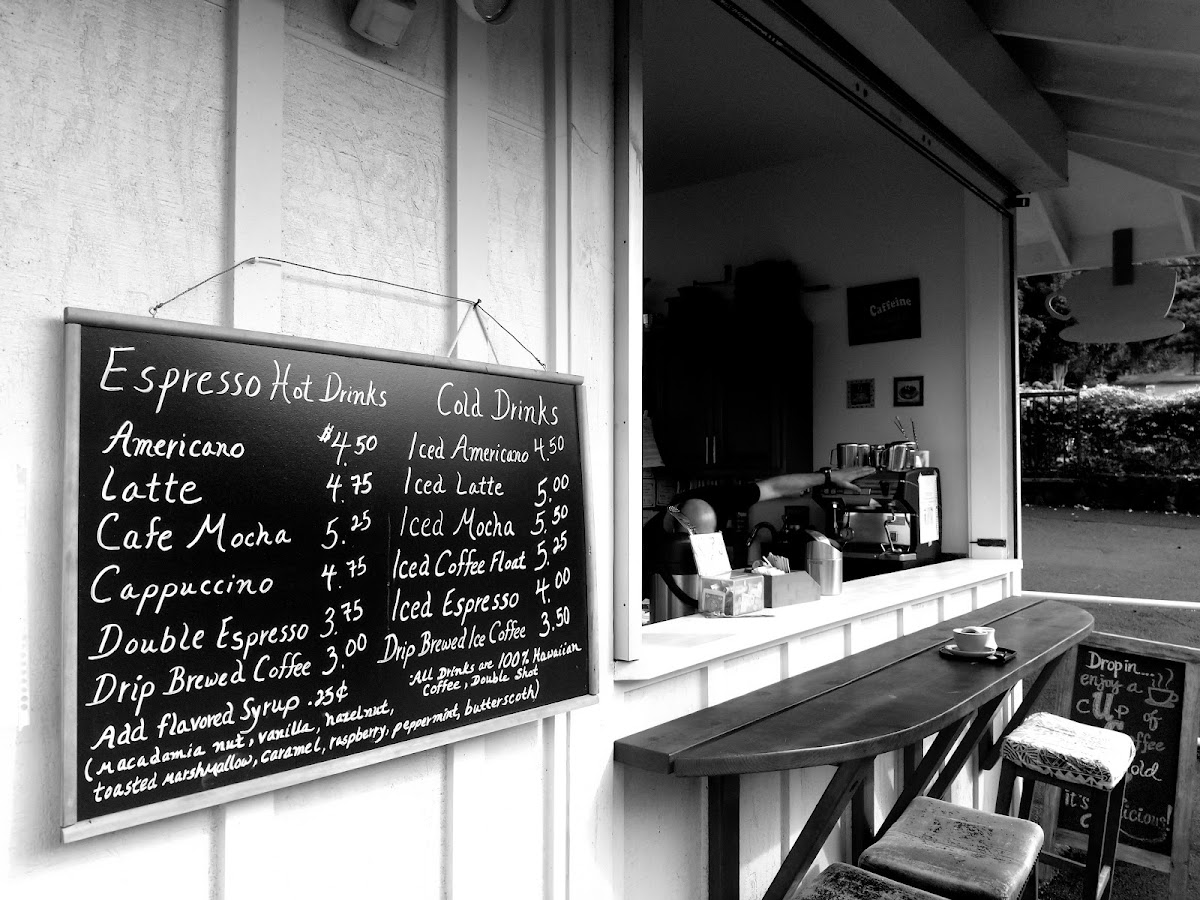 Espresso Hot Drinks
Americano $4.50
Latte 4.75
Cafe Mocha 5.25
Cappuccino 4.75
Double Espresso 3.75
Drip Brewed Coffee 3.00
Add flavored Syrup .25¢
(Macadamia nut, vanilla, hazelnut,
toasted marshmallow, caramel, raspberry, peppermint, butterscoth)
Cold Drinks
Iced Americano 4.50
Iced Latte 5.00
Iced Mocha 5.50
Iced Coffee Float 5.25
Iced Espresso 4.00
Drip Brewed Ice Coffee 3.50
All Drinks are 100% Hawaiian
Coffee, Double Shot
Caffeine
Drop in....
enjoy a
cup of
it's